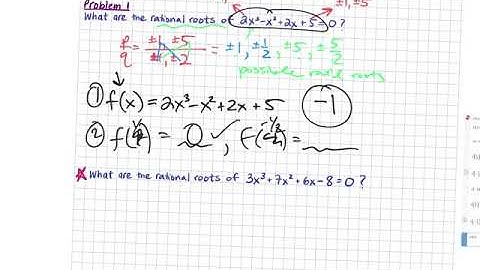 Problem 1
±1, ±5
What are the rational roots of 2x³-x²+2x+5=0?
p/q = ±1, ±5 / ±1, ±2 = ±1, ±1/2, ±5, ±5/2
possible rat'l roots
① f(x) = 2x³-x²+2x+5
-1
② f( ) = 0 ✓, f(-1/2) =
What are the rational roots of 3x³+7x²+6x-8=0?